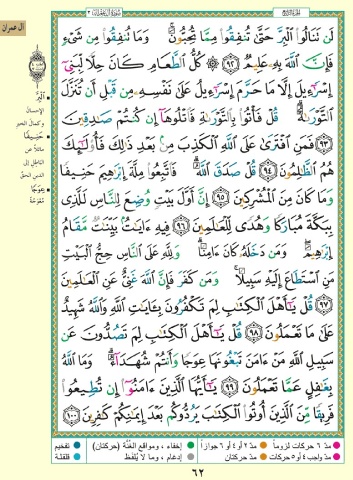 سُورَةُ آلِ عِمْرَان ٣
آل عمران
لَن تَنَالُوا۟ ٱلْبِرَّ حَتَّىٰ تُنفِقُوا۟ مِمَّا تُحِبُّونَ ۚ وَمَا تُنفِقُوا۟ مِن شَىْءٍ
فَإِنَّ ٱللَّهَ بِهِۦ عَلِيمٌ ٩٢ كُلُّ ٱلطَّعَامِ كَانَ حِلًّا لِّبَنِىٓ
إِسْرَٰٓءِيلَ إِلَّا مَا حَرَّمَ إِسْرَٰٓءِيلُ عَلَىٰ نَفْسِهِۦ مِن قَبْلِ أَن تُنَزَّلَ
ٱلتَّوْرَىٰةُ ۗ قُلْ فَأْتُوا۟ بِٱلتَّوْرَىٰةِ فَٱتْلُوهَآ إِن كُنتُمْ صَٰدِقِينَ
٩٣ فَمَنِ ٱفْتَرَىٰ عَلَى ٱللَّهِ ٱلْكَذِبَ مِنۢ بَعْدِ ذَٰلِكَ فَأُو۟لَٰٓئِكَ
هُمُ ٱلظَّٰلِمُونَ ٩٤ قُلْ صَدَقَ ٱللَّهُ ۗ فَٱتَّبِعُوا۟ مِلَّةَ إِبْرَٰهِيمَ حَنِيفًا
وَمَا كَانَ مِنَ ٱلْمُشْرِكِينَ ٩٥ إِنَّ أَوَّلَ بَيْتٍ وُضِعَ لِلنَّاسِ لَلَّذِى
بِبَكَّةَ مُبَارَكًا وَهُدًى لِّلْعَٰلَمِينَ ٩٦ فِيهِ ءَايَٰتٌۢ بَيِّنَٰتٌ مَّقَامُ
إِبْرَٰهِيمَ ۖ وَمَن دَخَلَهُۥ كَانَ ءَامِنًا ۗ وَلِلَّهِ عَلَى ٱلنَّاسِ حِجُّ ٱلْبَيْتِ
مَنِ ٱسْتَطَاعَ إِلَيْهِ سَبِيلًا ۚ وَمَن كَفَرَ فَإِنَّ ٱللَّهَ غَنِىٌّ عَنِ ٱلْعَٰلَمِينَ
٩٧ قُلْ يَٰٓأَهْلَ ٱلْكِتَٰبِ لِمَ تَكْفُرُونَ بِـَٔايَٰتِ ٱللَّهِ وَٱللَّهُ شَهِيدٌ
عَلَىٰ مَا تَعْمَلُونَ ٩٨ قُلْ يَٰٓأَهْلَ ٱلْكِتَٰبِ لِمَ تَصُدُّونَ عَن
سَبِيلِ ٱللَّهِ مَنْ ءَامَنَ تَبْغُونَهَا عِوَجًا وَأَنتُمْ شُهَدَآءُ ۗ وَمَا ٱللَّهُ
بِغَٰفِلٍ عَمَّا تَعْمَلُونَ ٩٩ يَٰٓأَيُّهَا ٱلَّذِينَ ءَامَنُوٓا۟ إِن تُطِيعُوا۟
فَرِيقًا مِّنَ ٱلَّذِينَ أُوتُوا۟ ٱلْكِتَٰبَ يَرُدُّوكُم بَعْدَ إِيمَٰنِكُمْ كَٰفِرِينَ ١٠٠
البِرّ
الإحسان
وكمال الخير
حنيفا
مائلا عن
الباطل إلى
الدين الحق
عوجا
مُعْوَجَّة
مدّ ٦ حركات لزوماً مدّ ٢ أو ٤ أو ٦ جوازاً
مدّ واجب ٤ أو ٥ حركات مدّ حركتان
إخفاء، ومواقع الغُنَّة (حركتان)
إدغام، وما لا يُلفَظ
تفخيم
قلقلة
٦٢